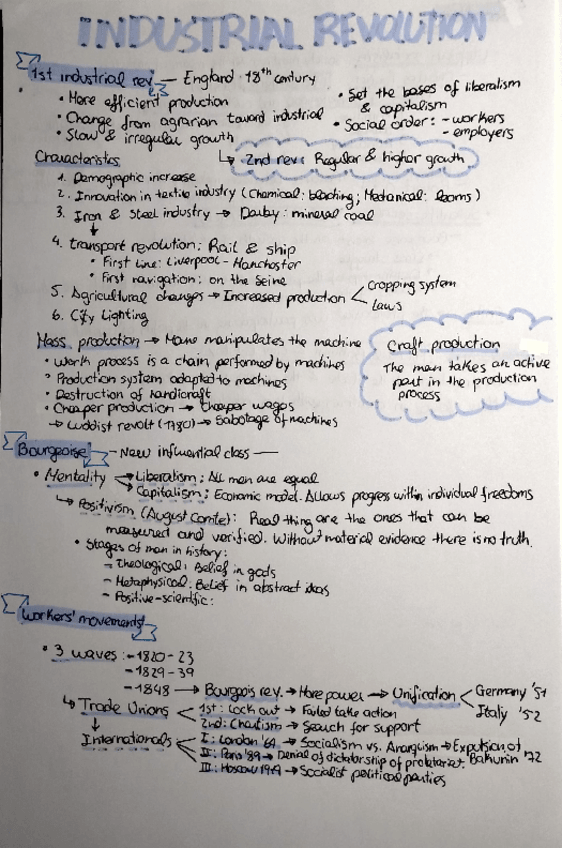 INDUSTRIAL REVOLUTION
1st industrial rev. — England · 18th century
• More efficient production
• Change from agrarian toward industrial
• Slow & irregular growth
• Set the bases of liberalism
& capitalism
• Social order: - workers
- employers
↳ 2nd rev: Regular & higher growth
Characteristics
1. Demographic increase
2. Innovation in textile industry (Chemical: bleaching; Mechanical: looms)
3. Iron & Steel industry → Dauby: mineral coal
↓
4. transport revolution: Rail & ship
• First Line: Liverpool - Manchester
• First navigation: on the Seine
5. Agricultural changes → Increased production < Cropping system
Laws
6. City Lighting
Mass. production → Mano manipulates the machine
• Work process is a chain performed by machines
• Production system adapted to machines
• Destruction of handicraft
• Cheaper production → Cheaper wages
→ Luddist revolt (1780) → Sabotage of machines
Craft production
The man takes an active
part in the production
process
Bourgeoise — New influential class —
• Mentality → Liberalism: All men are equal
→ Capitalism: Economic model. Allows progress within individual freedoms
↳ Positivism (August Comte): Real thing are the ones that can be
measured and verified. Without material evidence there is no truth.
• Stages of man in history:
- Theological: Belief in gods
- Metaphysical: Belief in abstract ideas
- Positive-scientific:
Workers' movements
• 3 waves: - 1820 - 23
- 1829 - 39
- 1848 → Bourgeois rev. → More power → Unification < Germany '51
Italy '52
↳ Trade Unions < 1st: Lock out → Failed take action
2nd: Chartism → Search for support
↓
Internationals < I: London '64 → Socialism vs. Anarquism → Expulsion of
Bakunin '72
II: Paris '89 → Denial of dictatorship of proletariat.
III: Moscow 1919 → Socialist political parties